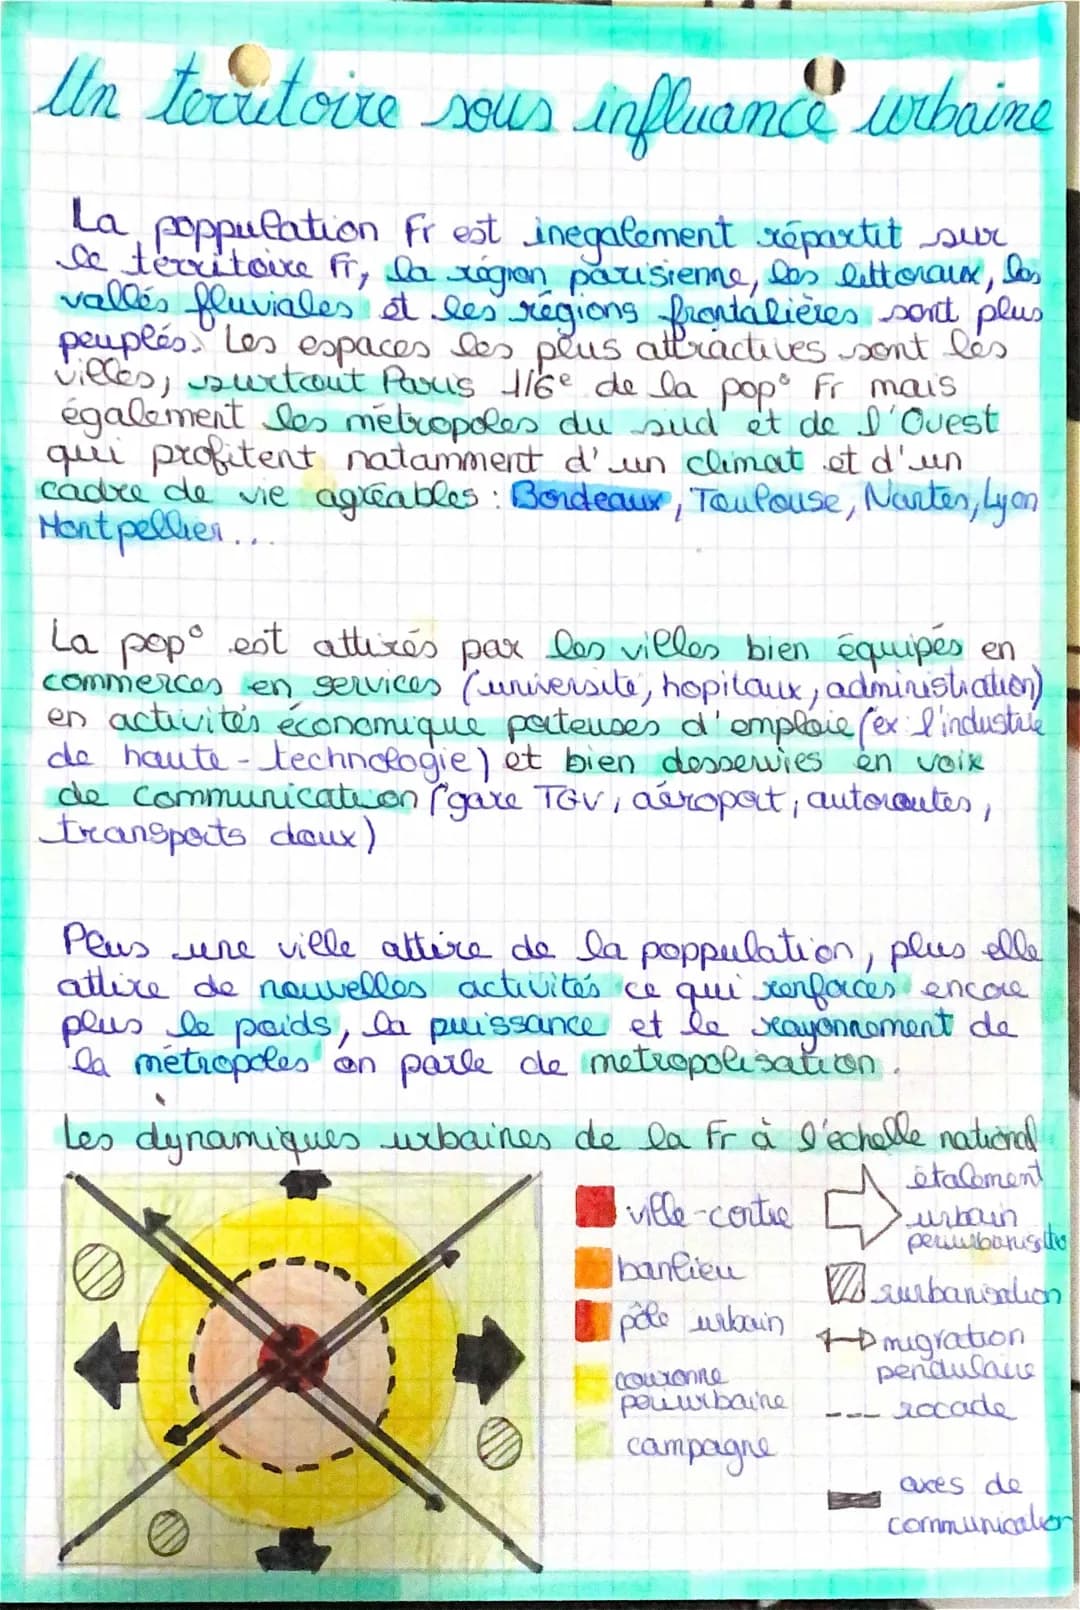 Un territoire sous influance urbaine
La poppulation Fr est inegalement répartit sur
le territoire Fr, la région parisienne, les littoraux, les
vallés fluviales et les régions frontalières sont plus
peuplés. Les espaces les plus attractives sont les
villes, surtout Paris 1/6e de la pop° Fr mais
également les métropoles du sud et de l'Ouest
qui profitent natamment d'un climat et d'un
cadre de vie agréables : Bordeaux, Toulouse, Nantes, Lyon
Montpellier...
La pop° est attirés par les villes bien équipés en
commerces en services (université, hopitaux, administration)
en activités économique porteuses d'emploie (ex : l'industrie
de haute-technologie) et bien desservies en voix
de communication (gare TGV, aéroport, autoroutes,
transports doux)
Plus une ville attire de la poppulation, plus elle
attire de nouvelles activités ce qui renforces encore
plus le poids, la puissance et le rayonnement de
la métropoles on parle de metropolisation.
Les dynamiques urbaines de la Fr à l'échelle national
ville-centre
banlieu
pôle urbain
couronne
périurbaine
campagne
étalement
urbain
surbanisation
migration
pendulaire
rocade
axes de
communication